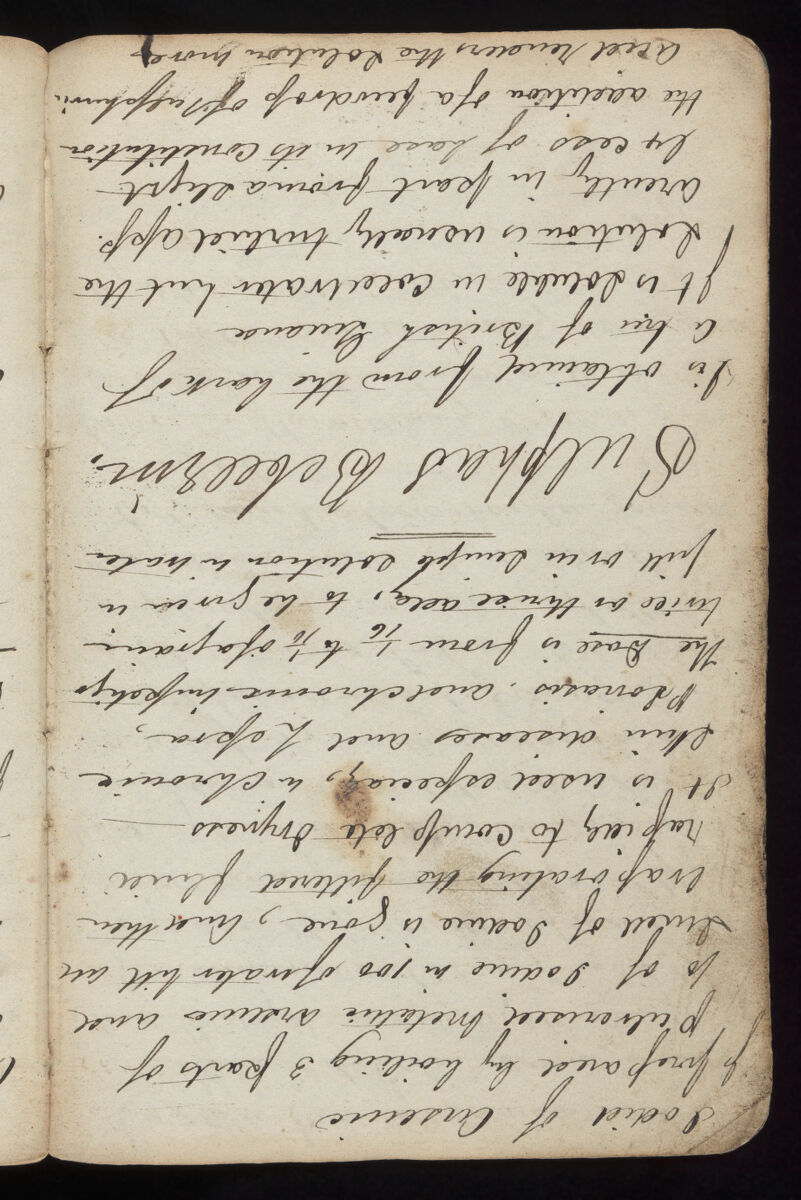 Iodid of Arsenic
prepared by boiling 3 parts of
pulverised metalic arsenic and
10 of Iodine in 100 of water till all
Smell of Iodine is gone, and then
Evaporating the filtered fluid
rapidly to complete dryness
It is used especialy in chronic
Skin diseases and Lepra,
Psoriasis. and chronic Impetigo
The Dose is from 1/16 to 1/10 of a grain
twice or thrice daily, to be given in
pill or in simple solution in water
Sulphas Bebeerin.
Is obtained from the bark of
a tree of British Guiana
It is soluble in Cold water but the
Solution is usually turbid app-
arently in part from a slight
Excess of base in its constitution
the addition of a few drops of Sulphuric
acid renders the solution more